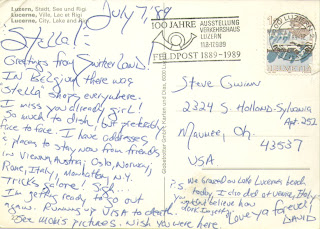 Luzern, Stadt, See und Rigi
Lucerne, Ville, Lac et Rigi
Lucerne, City, Lake and
July 7 '89
Stella!
Greetings from Switzerland!
In Belgium there was
Stella shops everywhere.
I miss you already girl!
So much to dish, but preferably
face to face. I have addresses
& places to stay now from friends
in Vienna, Austria, Oslo, Norway,
Rome, Italy, Monterey, N.Y.
Tricks galore! Sigh...
I'm getting ready to go out
again. Running up VISA to death.
See more pictures. Wish you were here.
100 JAHRE
FELDPOST 1889-1989
AUSSTELLUNG
VERKEHRSHAUS
LUZERN
LUZERN
HELVETIA
Steve Gwinn
2324 S. Holland-Sylvania
Apt 251
Maumee, Oh.
43537
USA
P.S. We on Lake Lucerne beach
today. I also did at
believe how
Love ya forever!
DAVID